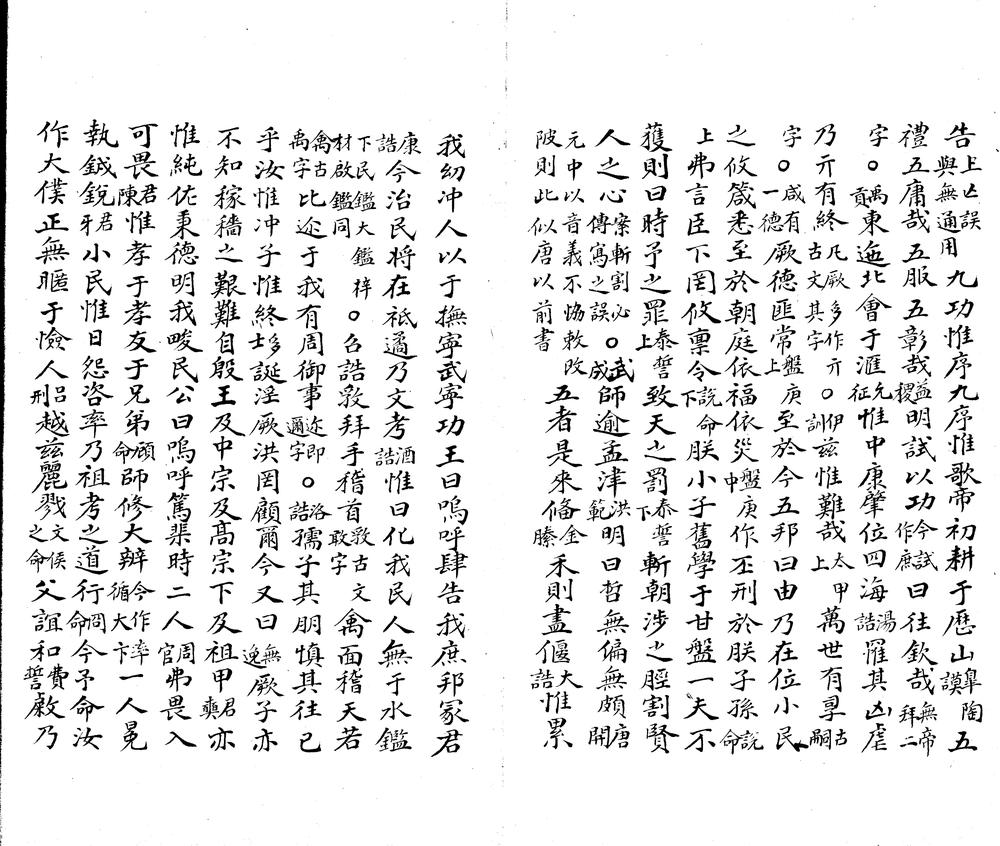 告上亾誤與無通用九功惟序九序惟歌帝初耕于歷山臯陶謨五
禮五庸哉五服五彰哉益稷明試以功今試作庶曰往欽哉無帝拜二
字○禹貢東迆北會于滙允征惟中康肇位四海湯誥罹其凶虐
乃亓有終凡厥多作亓古文其字○伊訓茲惟難哉太甲上萬世有古嗣
字○咸有一德厥德匪常盤庚上至於今五邦曰由乃在位小民
之攸箴悉至於朝庭依福依災盤庚中作丕刑於朕子孫說命
上弗言臣下罔攸稟令說命下朕小子舊學于甘盤一夫不
獲則曰時予之罪泰誓上致天之罰泰誓下斮朝涉之脛割賢
人之心案斬割必傳寫之誤○武成師逾孟津洪範明曰哲無偏無頗唐開
元中以音義不協敕改陂則此似唐以前書五者是來俻金縢禾則盡偃大誥惟累
我幼冲人以于撫寧武寧功王曰嗚呼肆告我庶邦冢君
康誥今治民將在祗遹乃文考酒誥惟曰化我民人無于水鑑
下民鑑大鑑梓材啟鑑同○召誥敦拜手稽首敦古文敢字禽面稽天若
禽古禹字比迩于我有周御事迩即邇字○洛誥孺子其朋慎其往已
乎汝惟冲子惟終多士誕淫厥洪罔顧爾今又曰無逸厥子亦
不知稼穡之艱難自殷王及中宗及髙宗下及祖甲君奭亦
惟純佐秉德明我畯民公曰嗚呼篤棐時二人周官弗畏入
可畏君陳惟孝于孝友于兄弟顧命師修大辨今作率循大卞一人冕
執鉞銳君牙小民惟日怨咨率乃祖考之道行冏命今予命汝
作大僕正無暱于憸人呂刑越茲麗戮文侯之命父誼和費誓敹乃